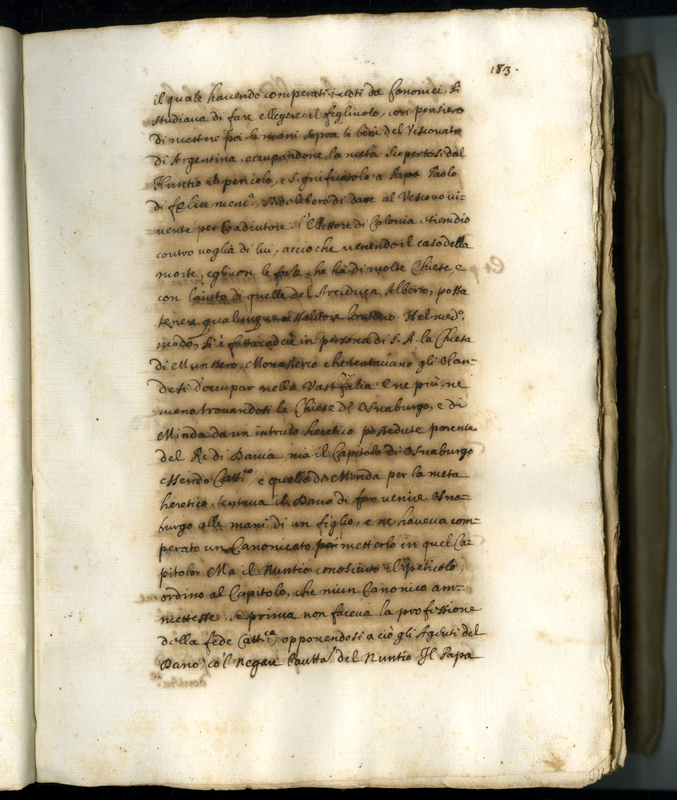 183.
il quale havendo comperati i voti de Canonici, si
studiava di fare eleggere il figliuolo, con pensiero
di mettere poi le mani sopra li beni del Vescovato
di Argentina, occupandone la metà. Scopertosi dal
Nuntio il pericolo, e significatolo a Papa Paolo
di felice mem.ª, si deliberò di dare al Vescovo vi-
vente per Coadiutore l'Elettore di Colonia etiandio
contro voglia di lui, acciò che venendo il caso della
morte, egli con le forze che hà di molte Chiese, e
con l'aiuto di quelle del Arciduca Alberto, possa
tenere qualunque
modo, si è fatto cadere in persona di S. A. la Chiesa
di Munstero, Monasterio che trattavano gli Olan-
desi d'occupar nella Vestfalia. E ne più, ne
meno trovandosi le Chiese di Osnaburgo, e di
Minda da un intruso heretico possedute parente
del Re di Dania, ma il Capitolo di Osnaburgo
essendo Catt.co, e quello di Minda per la metà
heretico, tentava il Dano di far venire Osna-
burgo alle mani di un figlio, e ne haveva com-
perato un Canonicato per metterlo in quel Ca-
pitolo. Ma il Nuntio conosciuto il pericolo,
ordinò al Capitolo, che niun Canonico am-
mettesse, se prima non faceva la professione
della fede Catt.ca, opponendosi a ciò gli Agenti del
Dano, co'l negare l'autt.à del Nuntio. Il Papa